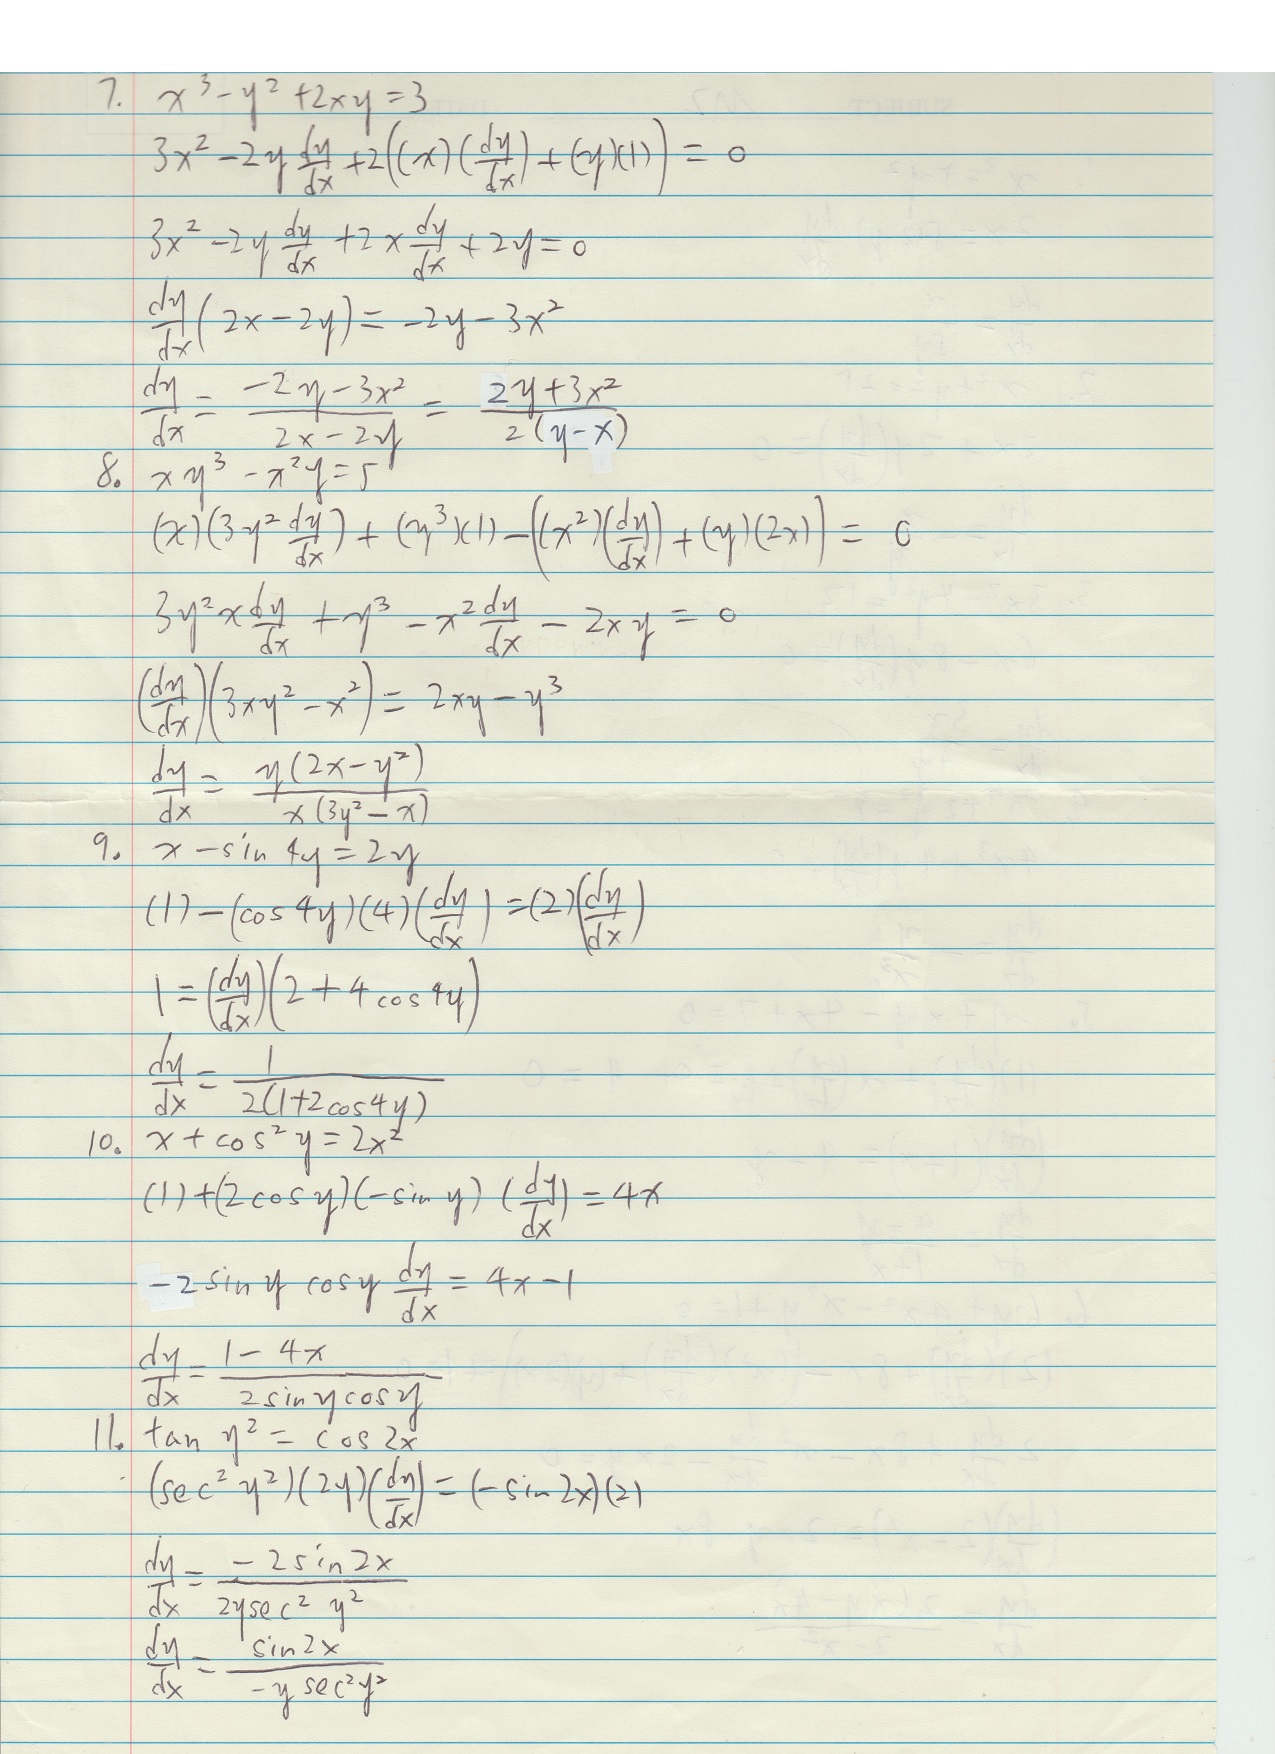 7. x³ - y² + 2xy = 3
3x² - 2y dy/dx + 2((x)(dy/dx) + (y)(1)) = 0
3x² - 2y dy/dx + 2x dy/dx + 2y = 0
dy/dx (2x - 2y) = -2y - 3x²
dy/dx = (-2y - 3x²)/(2x - 2y) = (2y + 3x²)/(2(y - x))
8. xy³ - x²y = 5
(x)(3y² dy/dx) + (y³)(1) - ((x²)(dy/dx) + (y)(2x)) = 0
3y²x dy/dx + y³ - x² dy/dx - 2xy = 0
(dy/dx)(3xy² - x²) = 2xy - y³
dy/dx = y(2x - y²)/(x(3y² - x))
9. x - sin 4y = 2y
(1) - (cos 4y)(4)(dy/dx) = (2)(dy/dx)
1 = (dy/dx)(2 + 4 cos 4y)
dy/dx = 1/(2(1 + 2 cos 4y))
10. x + cos² y = 2x²
(1) + (2 cos y)(-sin y)(dy/dx) = 4x
-2 sin y cos y dy/dx = 4x - 1
dy/dx = (1 - 4x)/(2 sin y cos y)
11. tan y² = cos 2x
(sec² y²)(2y)(dy/dx) = (-sin 2x)(2)
dy/dx = (-2 sin 2x)/(2y sec² y²)
dy/dx = (sin 2x)/(-y sec² y²)